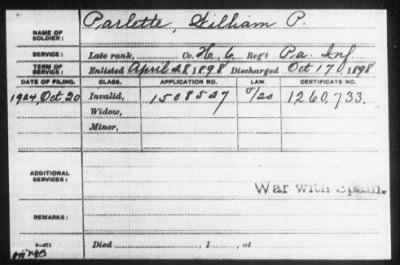 NAME OF SOLDIER: Parlette, William P.
SERVICE: Late rank, Co. H, 6 Reg't Pa. Inf
TERM OF SERVICE: Enlisted April 28, 1898 Discharged Oct 17, 1898
DATE OF FILING. CLASS. APPLICATION NO. LAW. CERTIFICATE NO.
1924, Oct 20 Invalid, 1508527 1260,733.
Widow,
Minor,
ADDITIONAL SERVICES:
War with Spain.
REMARKS:
Died , 1 , at